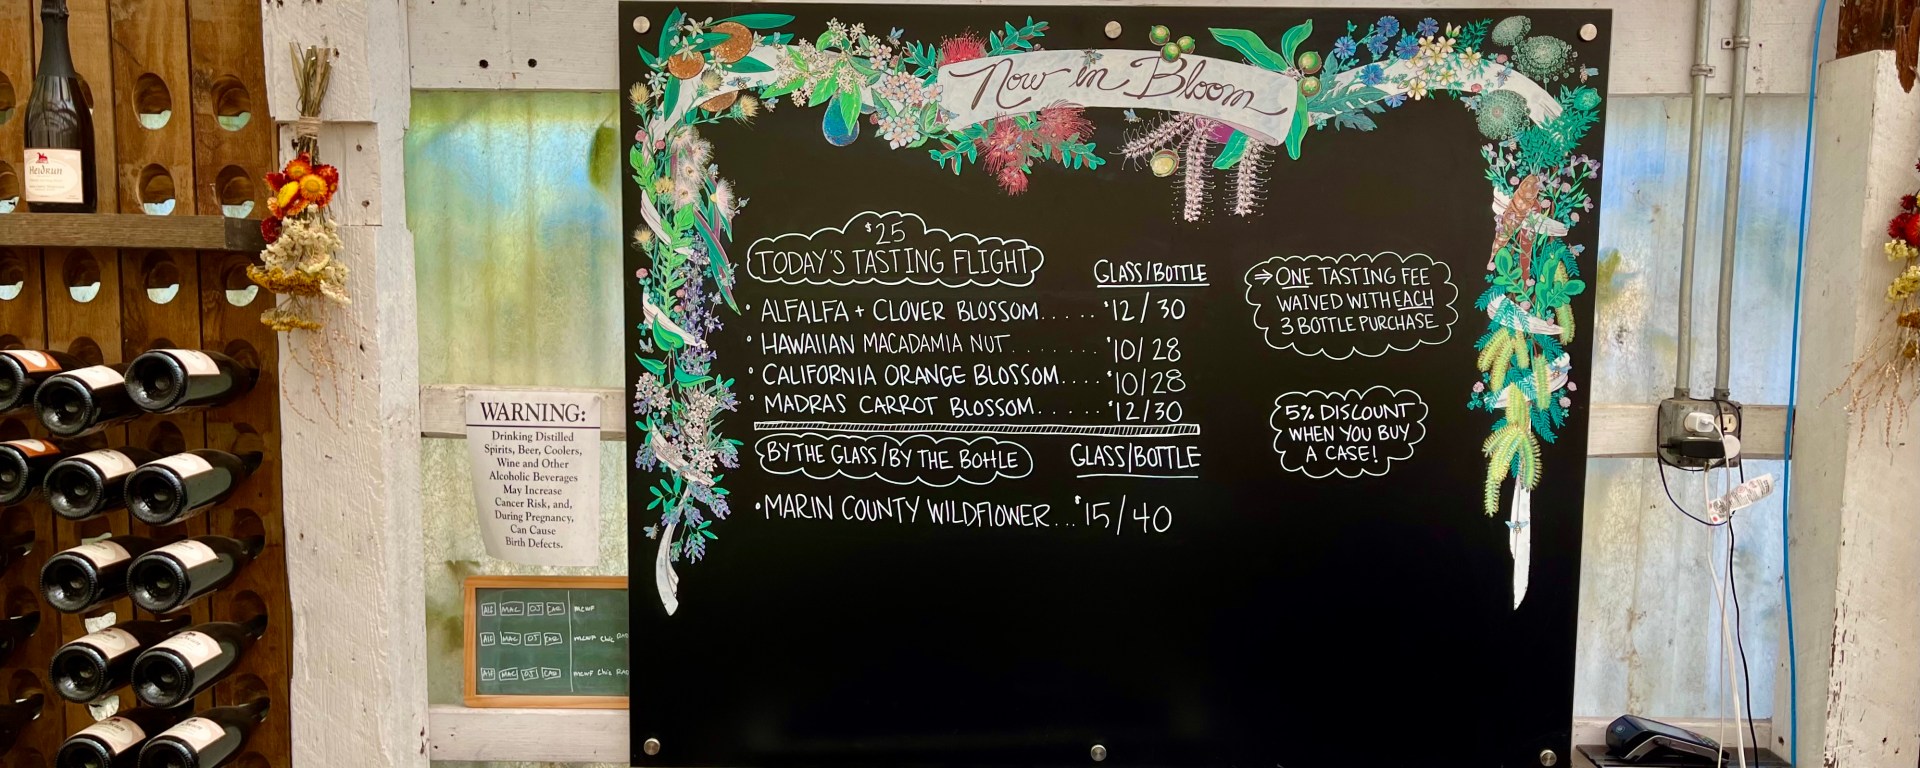 Now in Bloom
$25
TODAY'S TASTING FLIGHT
GLASS/BOTTLE
• ALFALFA + CLOVER BLOSSOM..... $12/30
• HAWAIIAN MACADAMIA NUT....... $10/28
• CALIFORNIA ORANGE BLOSSOM.... $10/28
• MADRAS CARROT BLOSSOM..... $12/30
BY THE GLASS/BY THE BOTTLE
GLASS/BOTTLE
• MARIN COUNTY WILDFLOWER... $15/40
⇒ ONE TASTING FEE
WAIVED WITH EACH
3 BOTTLE PURCHASE
5% DISCOUNT
WHEN YOU BUY
A CASE!
Heidrun
WARNING:
Drinking Distilled
Spirits, Beer, Coolers,
Wine and Other
Alcoholic Beverages
May Increase
Cancer Risk, and,
During Pregnancy,
Can Cause
Birth Defects.
Alf MAC OJ CAR MCWF
Alf MAC OJ CAR MCWF
Alf MAC OJ CAR MCWF